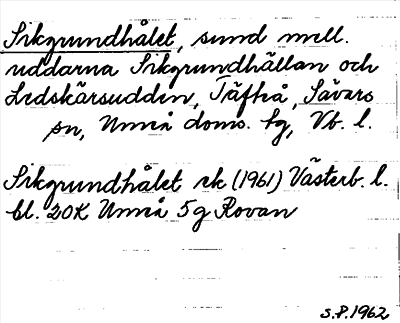 Sikgrundhålet, sund mell.
uddarna Sikgrundhällan och
Ledskärsudden, Täfteå, Sävars
sn, Umeå doms. hg, Vb. l.
Sikgrundhålet rk (1961) Västerb. l.
bl. 20K Umeå 5g Rovan
S.P. 1962